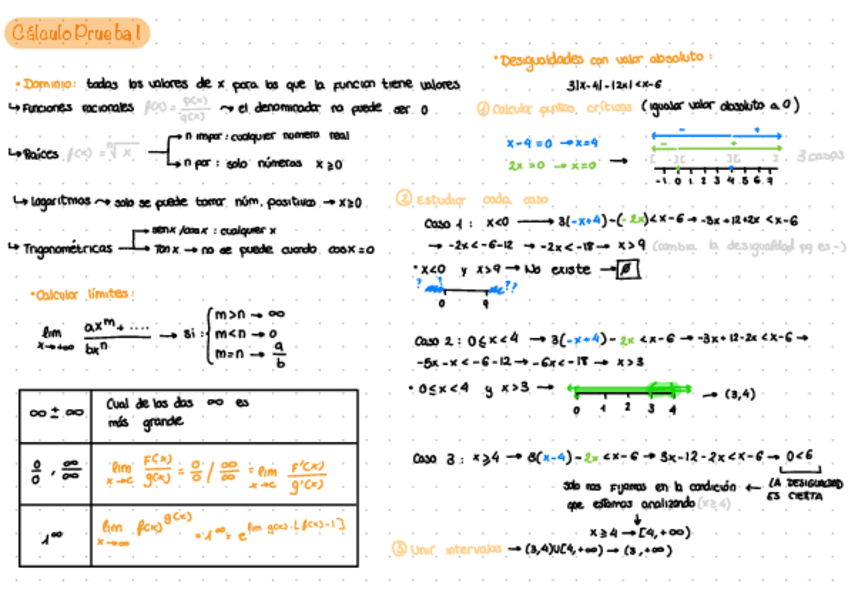 Cálculo Prueba 1
• Dominio: todos los valores de x para los que la funcion tiene valores
↳ Funciones racionales f(x) = p(x)/q(x) ⤳ el denominador no puede ser 0
↳ Raíces f(x) = ⁿ√x
→ n impar: cualquier numero real
→ n par: solo números x ≥ 0
↳ logaritmos ⤳ solo se puede tomar núm. positivos → x ≥ 0
↳ Trigonométricas
→ senx / cosx : cualquier x
→ Tan x → no se puede cuando cosx = 0
• Calcular límites:
lim x→+∞ axᵐ + .... / bxⁿ → si :
m > n → ∞
m < n → 0
m = n → a/b
∞ ± ∞
Cual de los dos ∞ es
más grande
0/0 , ∞/∞
lim x→c F(x)/g(x) = 0/0 / ∞/∞ = lim x→c F'(x)/g'(x)
1^∞
lim x→∞ f(x)^g(x) = 1^∞ = e^lim g(x)·[f(x)-1]
• Desigualdades con valor absoluto:
3|x-4| - |2x| < x-6
① Calcular puntos críticos (igualar valor absoluto a 0)
x-4 = 0 → x = 4
2x = 0 → x = 0 →
- +
- +
3 casos
-1 0 1 2 3 4 5 6 7
② Estudiar cada caso
Caso 1 : x<0 → 3(-x+4)-(-2x) < x-6 → -3x+12+2x < x-6
→ -2x < -6-12 → -2x < -18 → x > 9 (cambia la desigualdad pq es -)
• x<0 y x>9 → No existe → ∅
? ??
0 9
Caso 2 : 0 ≤ x < 4 → 3(-x+4) - 2x < x-6 → -3x+12-2x < x-6 →
-5x-x < -6-12 → -6x < -18 → x > 3
• 0 ≤ x < 4 y x > 3 → → (3,4)
0 1 2 3 4
Caso 3 : x ≥ 4 → 3(x-4) - 2x < x-6 → 3x-12-2x < x-6 → 0 < 6
solo nos fijamos en la condición ← LA DESIGUALDAD
que estamos analizando (x ≥ 4) ES CIERTA
x ≥ 4 → [4, +∞)
③ Unir intervalos → (3,4)U[4,+∞) → (3,+∞)